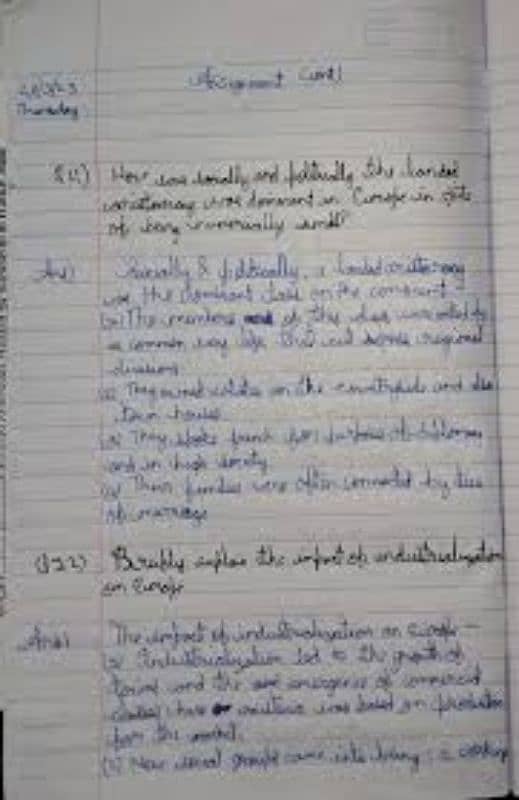 Assignment
Thursday
How was socially and politically the landed
aristocracy was dominant in Europe in
of being numerically small?
Ans) Socially & politically, a landed aristocracy
was the dominant class on the continent
The members of this class were united by
a common way life that cut across regional
divisions
They owned estates in the countryside and also
town houses
They spoke french for purpose of diplomacy
and in high society
Their families were often connected by ties
of marriage
Briefly explain the impact of industrialization
on Europe
Ans) The impact of industrialization on Europe -
Industrialization led to the growth of
towns and the emergence of commercial
classes whose existence was based on production
for the market.
New social groups came into being : a working